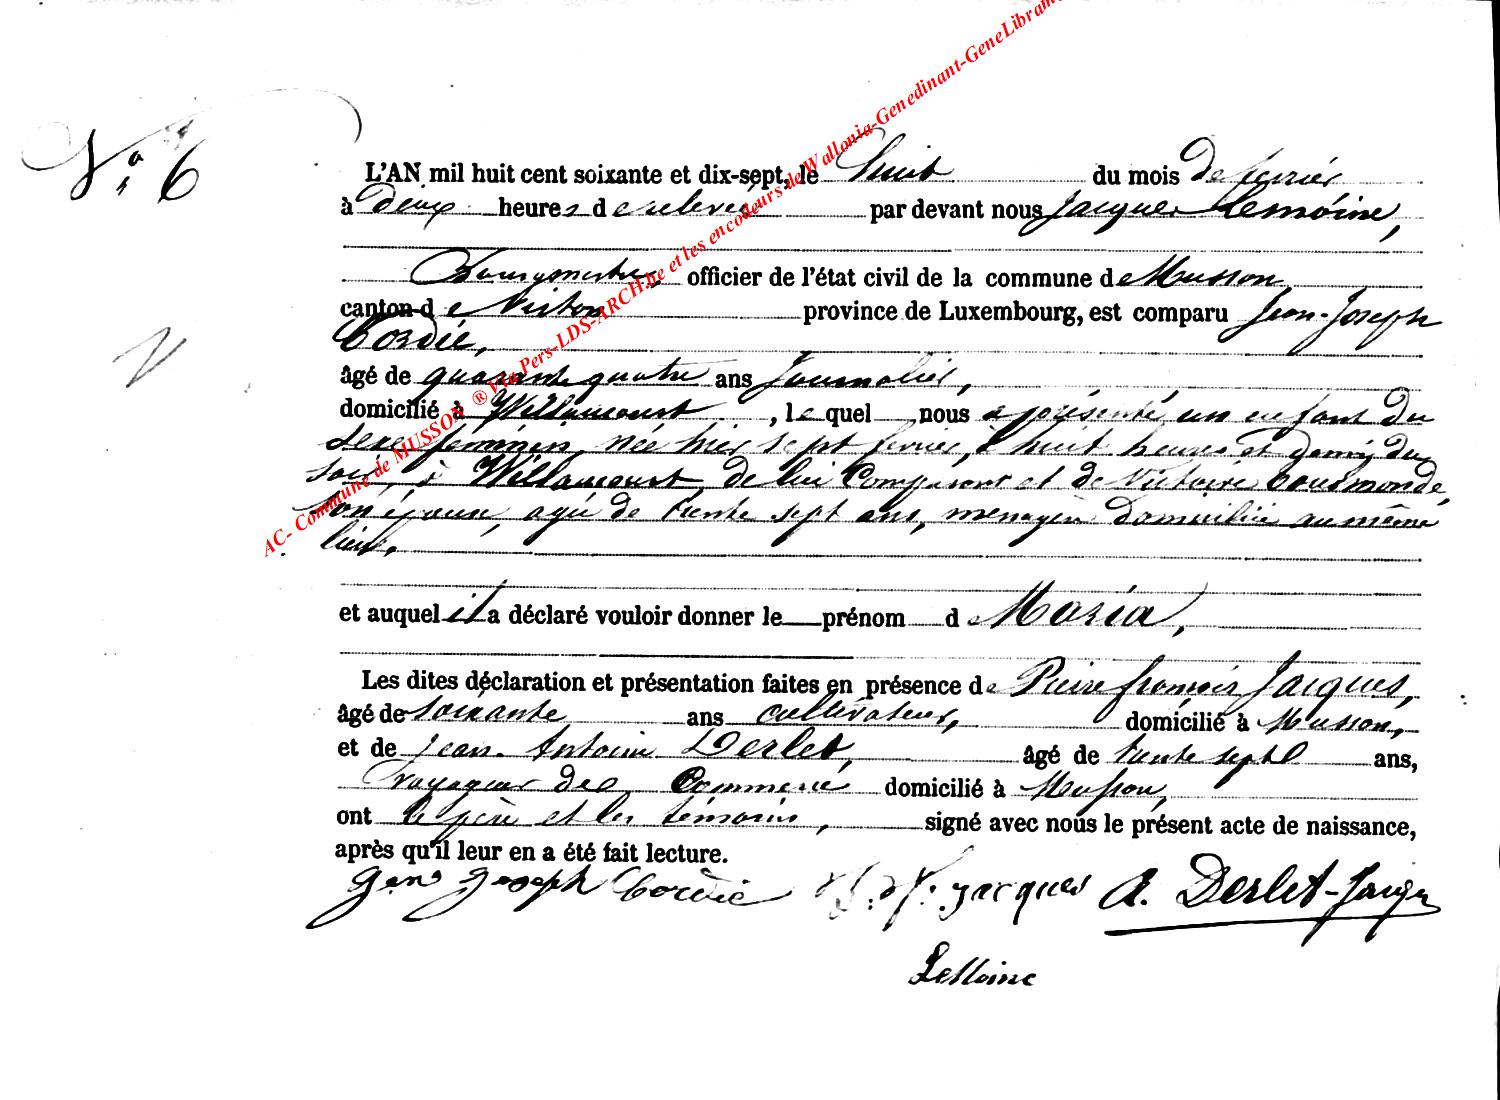 N° 6
L'AN mil huit cent soixante et dix-sept, le huit du mois de fevrier
à deux heures de relevée par devant nous Jacques Lemoine,
Bourgmestre officier de l'état civil de la commune de Musson
canton de Virton province de Luxembourg, est comparu Jean-Joseph
Cordié,
âgé de quarante quatre ans Journalier,
domicilié à Willancourt, lequel nous a présenté un enfant du
sexe féminin, née hier sept fevrier, à huit heures et demie du
soir, à Willancourt, de lui Comparant et de Victoire Courmonde,
son épouse, agée de trente sept ans, menagère domiciliée au même
lieu,
et auquel il a déclaré vouloir donner le prénom de Maria,
Les dites déclaration et présentation faites en présence de Pierre françois Jacques,
âgé de soixante ans cultivateur, domicilié à Musson,
et de Jean-Antoine Derlet, âgé de trente sept ans,
voyageur de Commerce domicilié à Musson,
ont le père et les témoins, signé avec nous le présent acte de naissance,
après qu'il leur en a été fait lecture.
Jean Joseph Cordié Jacques A. Derlet-Jacques
Lemoine
AC- Commune de MUSSON ® Via Pers-LDS-ARCH.be et les encodeurs de Wallonia-Genedinant-GeneLibramont